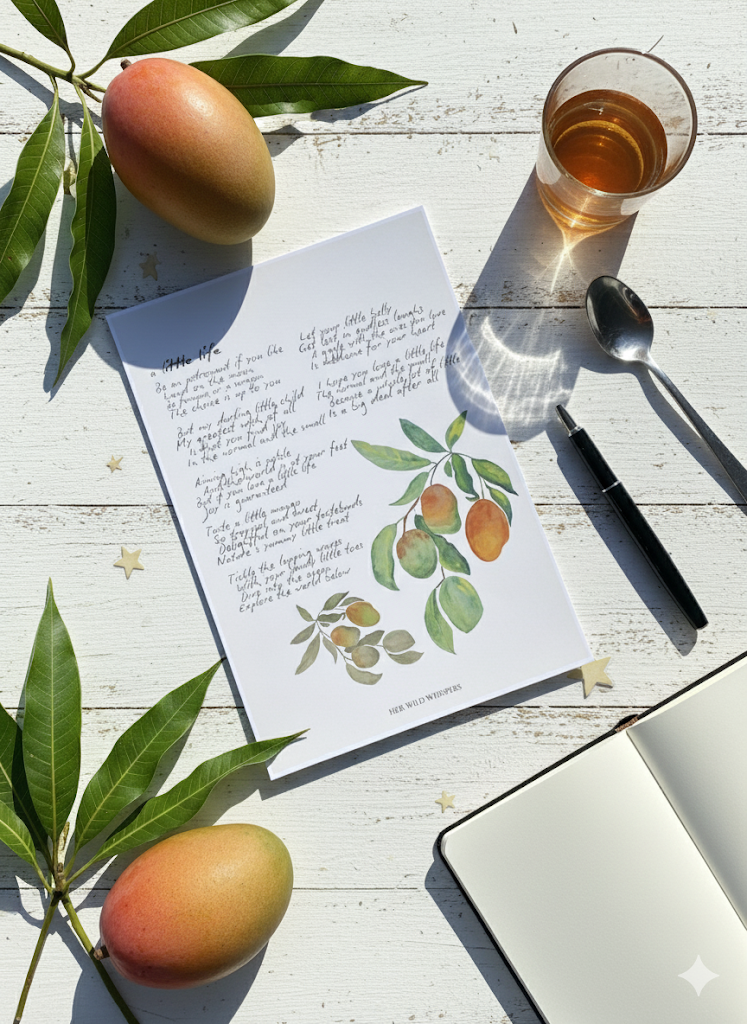 a little life
Be an astronaut if you like
Land on the moon
or a
The choice is up to you
But my darling little child
My greatest wish of all
Is that you find joy
In the normal and the small
Aiming high is noble
And the world is at your feet
But if you love a little life
Joy is guaranteed
Taste a little mango
So tropical and sweet
Delightful on your tastebuds
Nature's yummy little treat
Tickle the lapping waves
With your sandy little toes
Dive into the ocean
Explore the world below
Let your little belly
Get lost in endless laughs
A with the ones you love
Is welcome for your heart
I hope you love a little life
The normal and the small
Because a whole lot of little
Is a big deal after all
HER WILD WHISPERS